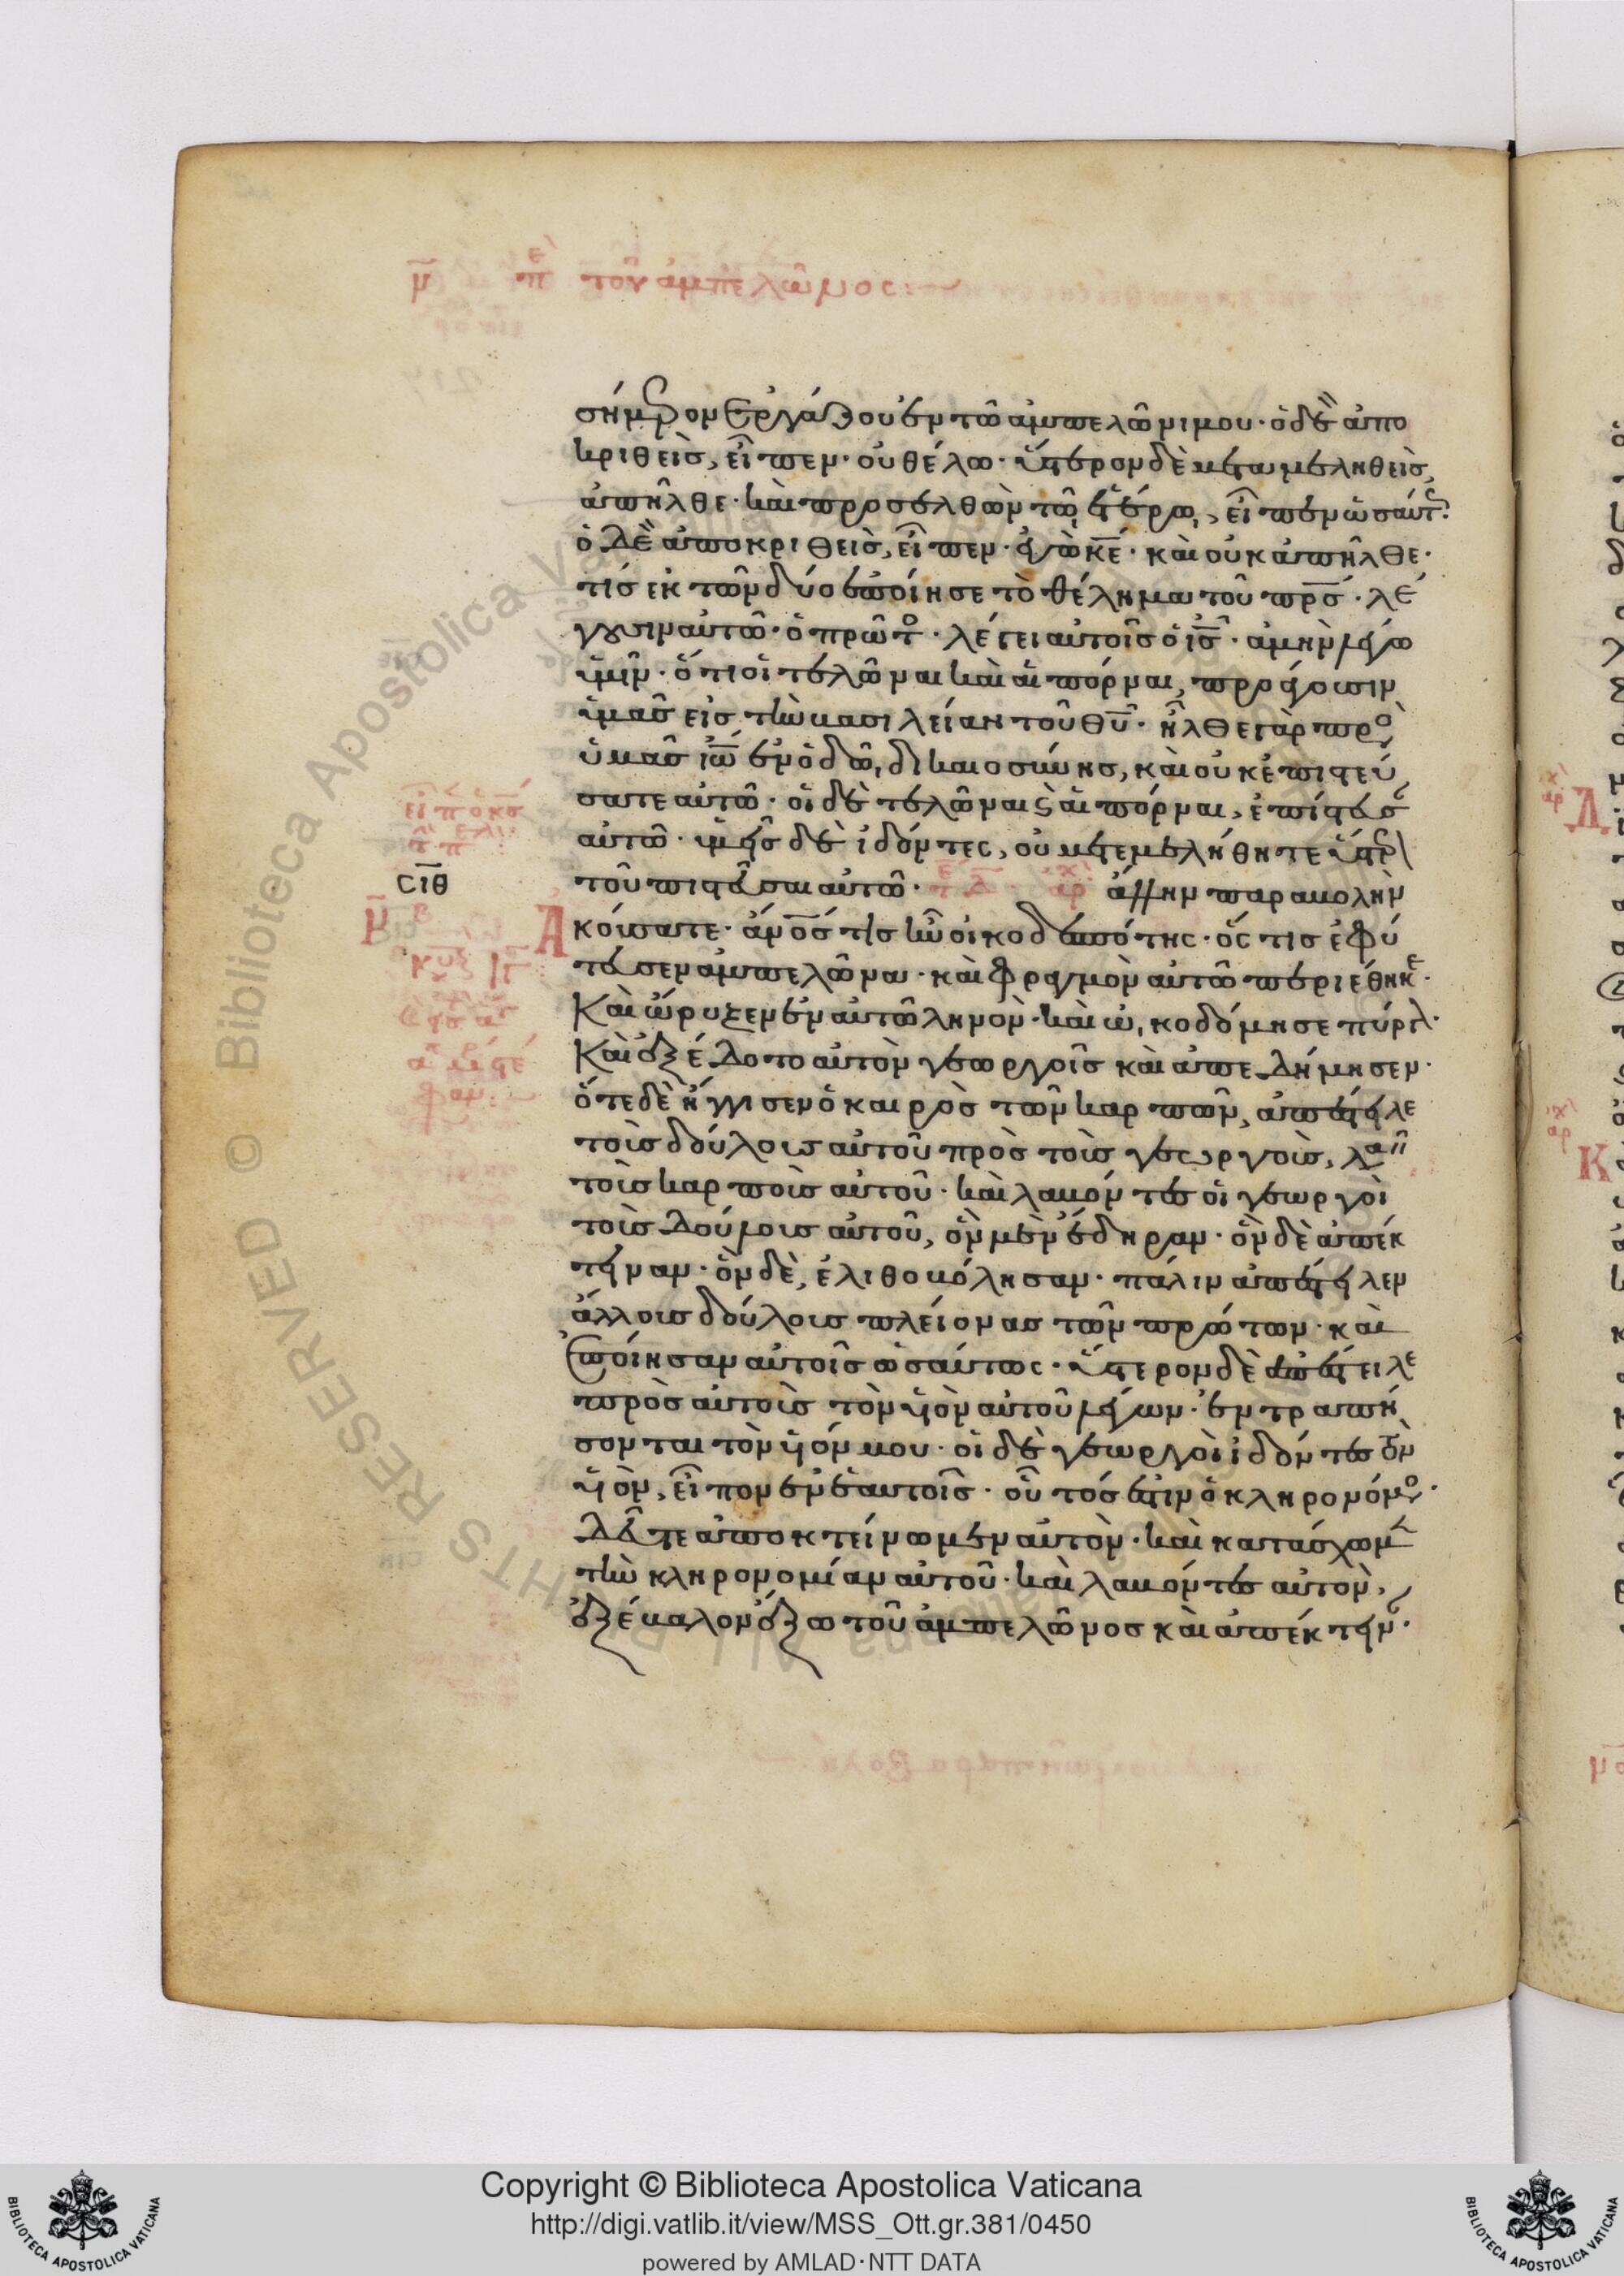 μ̅ πε τοῦ ἀμπελῶνος:
σήμερον ἐργάζου ἐν τῶ ἀμπελῶνι μου· ὁ δὲ ἀπο
κριθεὶς, εἶπεν· οὐ θέλω· ὕστερον δὲ μεταμεληθεὶς,
ἀπῆλθε· καὶ προσελθὼν τῶ ἑτέρω, εἶπεν ὡσαύτ
ὁ δὲ ἀποκριθεὶς, εἶπεν· ἐγὼ κ̅ε̅· καὶ οὐκ ἀπῆλθε·
τίς ἐκ τῶν δύο ἐποίησε τὸ θέλημα τοῦ πρ̅σ̅· λέ
γουσιν αὐτῶ· ὁ πρῶτο· λέγει αὐτοῖς ὁ ι̅ς̅· ἀμὴν λέγω
ὑμῖν· ὅτι οἱ τελῶναι καὶ αἱ πόρναι, προάγουσιν
ὑμᾶς εἰς τὴν βασιλείαν τοῦ θ̅υ̅· ἦλθε γὰρ πρὸ
ὑμᾶς ἰω̅ ἐν ὁδῶ, δικαιοσύνης, καὶ οὐκ ἐπιστεύ
σατε αὐτῶ· οἱ δὲ τελῶναι ϛ αἱ πόρναι, ἐπίστευσ
αὐτῶ· ὑμεῖς δὲ ἰδόντες, οὐ μετεμελήθητε ὕστερ
τοῦ πιστεῦσαι αὐτῶ· ἄλλην παραβολὴν
Ἀκούσατε· ἄν̅ο̅ς̅ τίς ἦν οἰκοδεσπότης· ὅς τις ἐφύ
τευσεν ἀμπελῶνα· καὶ φραγμὸν αὐτῶ περιέθηκε·
Καὶ ὤρυξεν ἐν αὐτῶ ληνὸν· καὶ ὠκοδόμησε πύργ·
Καὶ ἐξέδοτο αὐτὸν γεωργοῖς καὶ ἀπεδήμησεν·
ὅτε δὲ ἤγγισεν ὁ καιρὸς τῶν καρπῶν, ἀπέστειλε
τοὺς δούλους αὐτοῦ πρὸς τοὺς γεωργοὺς, λα
τοὺς καρποὺς αὐτοῦ· καὶ λαβόντες οἱ γεωργοὶ
τοὺς δούλους αὐτοῦ, ὃν μὲν ἔδηραν· ὃν δὲ ἀπέκ
τειναν· ὃν δὲ, ἐλιθοβόλησαν· πάλιν ἀπέστειλεν
ἄλλους δούλους πλείονας τῶν πρώτων· καὶ
ἐποίησαν αὐτοῖς ὡσαύτως· ὕστερον δὲ ἀπέστειλε
πρὸς αὐτοὺς τὸν υἱὸν αὐτοῦ λέγων· ἐντραπή
σονται τὸν υἱόν μου· οἱ δὲ γεωργοὶ ἰδόντες τὸν
υἱὸν, εἶπον ἐν ἑαυτοῖς· οὗτός ἐστιν ὁ κληρονόμο·
δεῦτε ἀποκτείνωμεν αὐτὸν· καὶ κατάσχωμ
τὴν κληρονομίαν αὐτοῦ· καὶ λαβόντες αὐτὸν,
ἐξέβαλον ἔξω τοῦ ἀμπελῶνος καὶ ἀπέκτειν·
σ̅ι̅θ̅
© Biblioteca Apostolica Vaticana ALL RIGHTS RESERVED
Copyright © Biblioteca Apostolica Vaticana
http://digi.vatlib.it/view/MSS_Ott.gr.381/0450
powered by AMLAD·NTT DATA
BIBLIOTECA APOSTOLICA VATICANA
BIBLIOTECA APOSTOLICA VATICANA